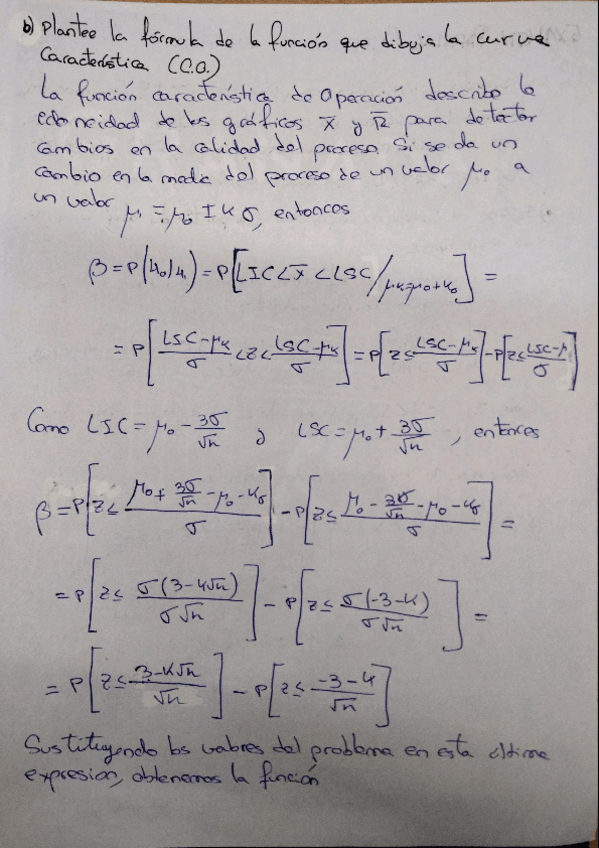 b) Plantee la fórmula de la función que dibuja la curva
Característica (C.O.)
La función característica de Operación describe la
idoneidad de los gráficos X̄ y R̄ para detectar
cambios en la calidad del proceso. Si se da un
cambio en la media del proceso de un valor μ₀ a
un valor μ₁ = μ₀ ± kσ, entonces
β = P(H₀/H₁) = P[LIC < X̄ < LSC / μₖ = μ₀ + kσ] =
= P[(LSC - μₖ)/σ < Z < (LSC - μₖ)/σ] = P[Z ≤ (LSC - μₖ)/σ] - P[Z ≤ (LSC - μ)/σ]
Como LIC = μ₀ - 3σ/√n y LSC = μ₀ + 3σ/√n, entonces
β = P[Z ≤ (μ₀ + 3σ/√n - μ₀ - kσ)/σ] - P[Z ≤ (μ₀ - 3σ/√n - μ₀ - kσ)/σ] =
= P[Z ≤ σ(3 - k√n)/(σ√n)] - P[Z ≤ σ(-3 - k)/(σ√n)] =
= P[Z ≤ (3 - k√n)/√n] - P[Z ≤ (-3 - k)/√n]
Sustituyendo los valores del problema en esta última
expresión, obtenemos la función